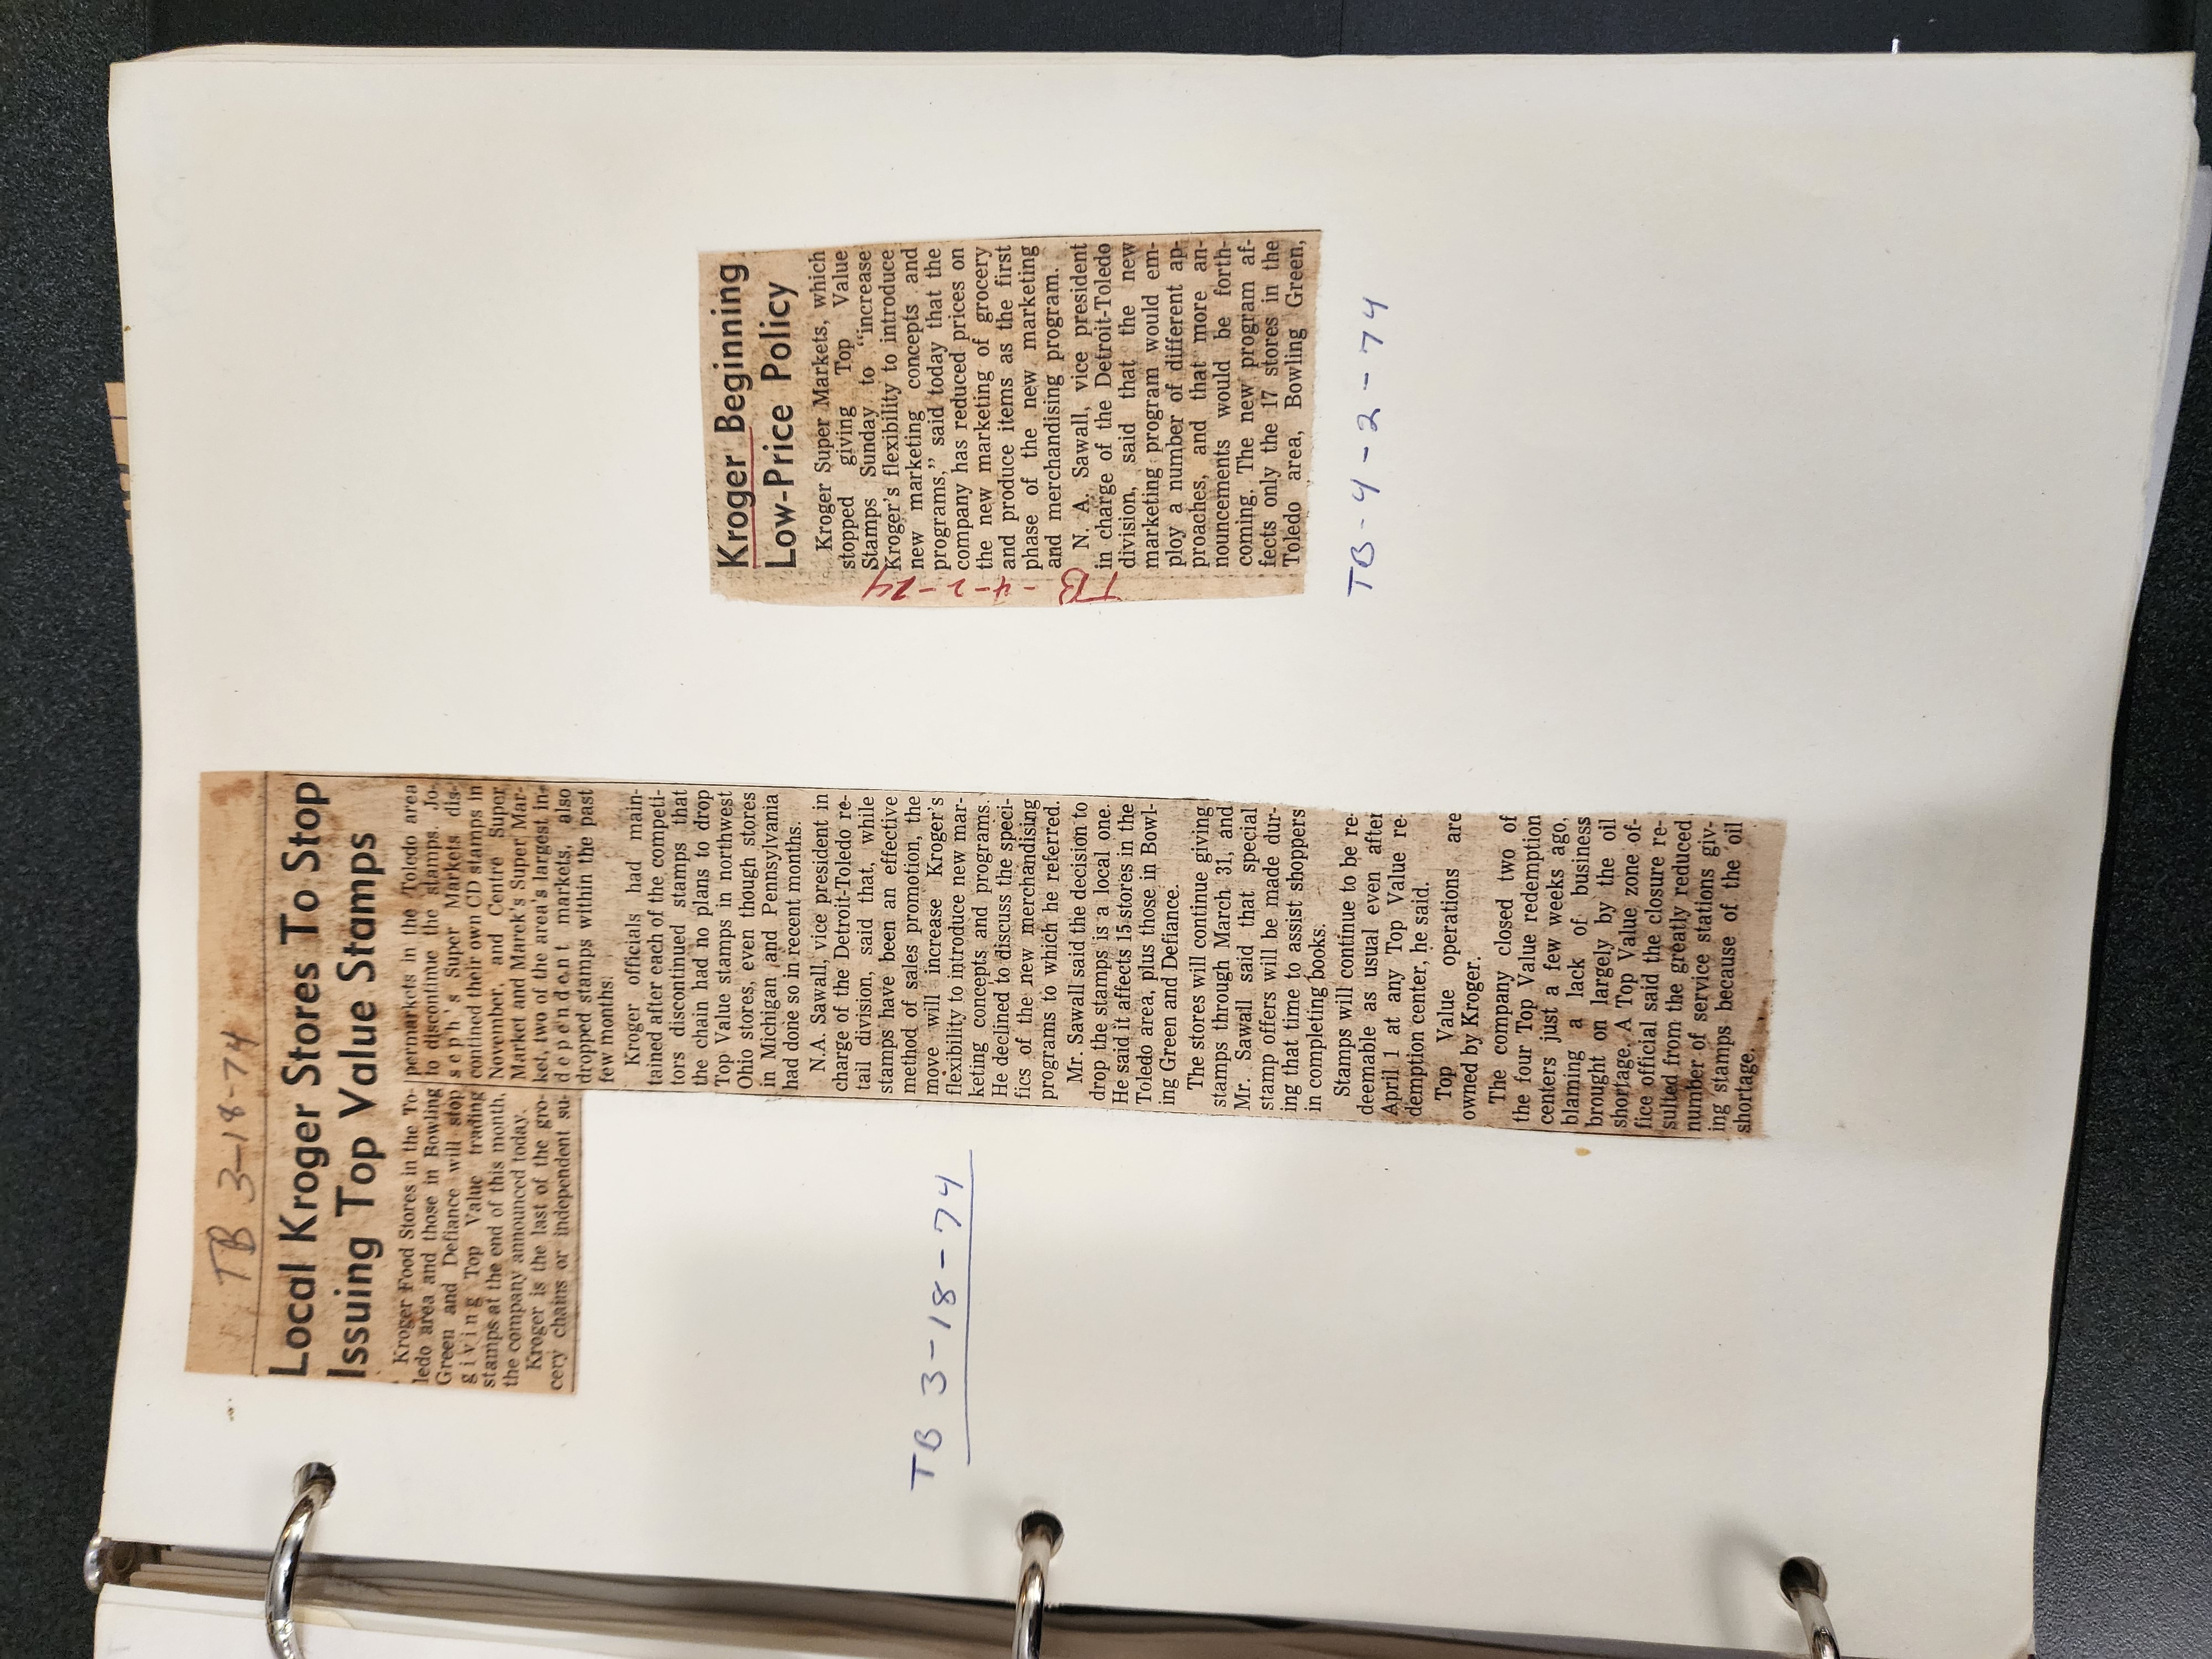 TB 3-18-74
Local Kroger Stores To Stop
Issuing Top Value Stamps
Kroger Food Stores in the To-
ledo area and those in Bowling
Green and Defiance will stop
giving Top Value trading
stamps at the end of this month,
the company announced today.
Kroger is the last of the gro-
cery chains or independent su-
permarkets in the Toledo area
to discontinue the stamps. Jo-
seph's Super Markets dis-
contined their own CD stamps in
November, and Centre Super
Market and Marek's Super Mar-
ket, two of the area's largest in-
dependent markets, also
dropped stamps within the past
few months.
Kroger officials had main-
tained after each of the competi-
tors discontinued stamps that
the chain had no plans to drop
Top Value stamps in northwest
Ohio stores, even though stores
in Michigan and Pennsylvania
had done so in recent months.
N.A. Sawall, vice president in
charge of the Detroit-Toledo re-
tail division, said that, while
stamps have been an effective
method of sales promotion, the
move will increase Kroger's
flexibility to introduce new mar-
keting concepts and programs.
He declined to discuss the speci-
fics of the new merchandising
programs to which he referred.
Mr. Sawall said the decision to
drop the stamps is a local one.
He said it affects 15 stores in the
Toledo area, plus those in Bowl-
ing Green and Defiance.
The stores will continue giving
stamps through March 31, and
Mr. Sawall said that special
stamp offers will be made dur-
ing that time to assist shoppers
in completing books.
Stamps will continue to be re-
deemable as usual even after
April 1 at any Top Value re-
demption center, he said.
Top Value operations are
owned by Kroger.
The company closed two of
the four Top Value redemption
centers just a few weeks ago,
blaming a lack of business
brought on largely by the oil
shortage. A Top Value zone of-
fice official said the closure re-
sulted from the greatly reduced
number of service stations giv-
ing stamps because of the oil
shortage.
TB 3-18-74
Kroger Beginning
Low-Price Policy
Kroger Super Markets, which
stopped giving Top Value
Stamps Sunday to "increase
Kroger's flexibility to introduce
new marketing concepts and
programs," said today that the
company has reduced prices on
the new marketing of grocery
and produce items as the first
phase of the new marketing
and merchandising program.
N. A. Sawall, vice president
in charge of the Detroit-Toledo
division, said that the new
marketing program would em-
ploy a number of different ap-
proaches, and that more an-
nouncements would be forth-
coming. The new program af-
fects only the 17 stores in the
Toledo area, Bowling Green,
TB-4-2-74
TB-4-2-74